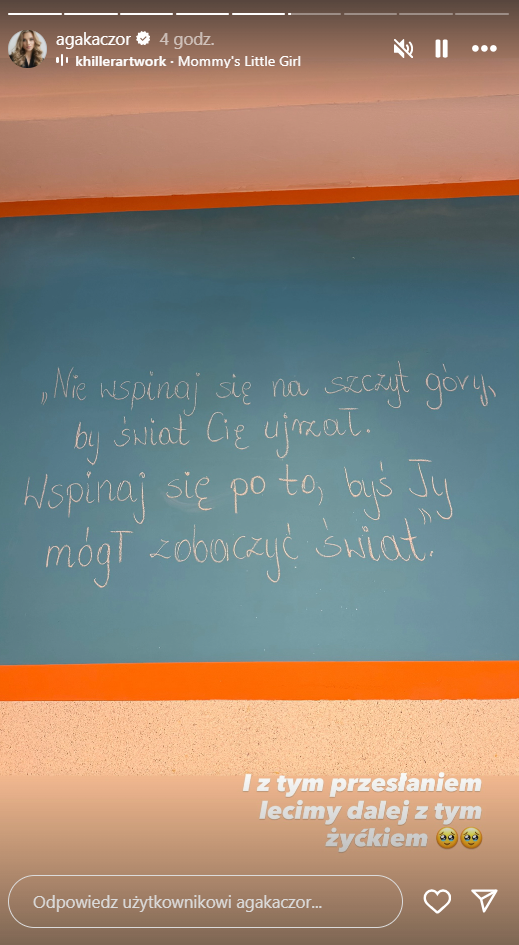 agakaczor 4 godz.
khillerartwork · Mommy's Little Girl
„Nie wspinaj się na szczyt góry,
by świat Cię ujrzał.
Wspinaj się po to, byś Ty
mógł zobaczyć świat”.
I z tym przesłaniem
lecimy dalej z tym
żyćkiem 🥹🥹
Odpowiedz użytkownikowi agakaczor...